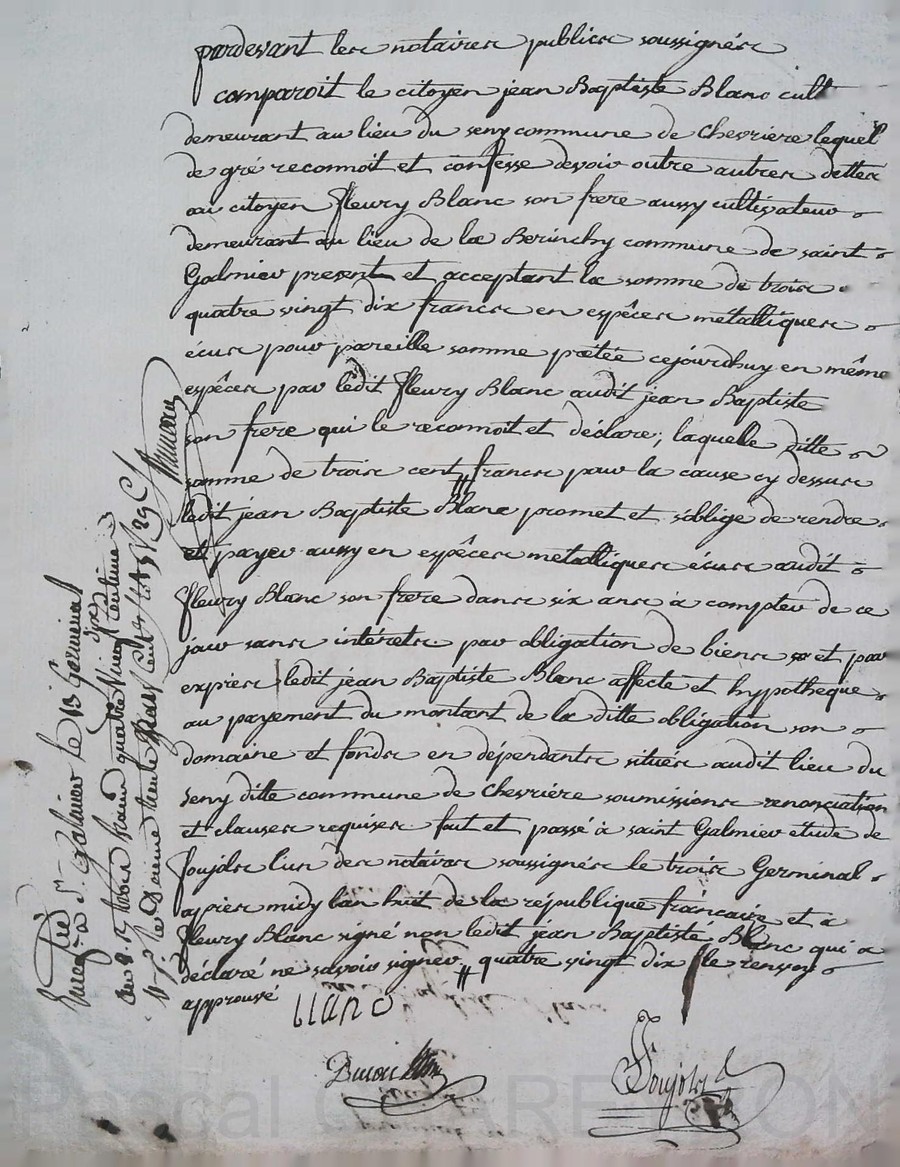 pardevant les notaires publics soussignés
comparoit le citoyen jean Baptiste Blanc cult
demeurant au lieu du seny commune de Chevriere lequel
de gré reconnoit et confesse devoir outre autres dettes
au citoyen fleury Blanc son frere aussy cultivateur
demeurant au lieu de la Berinchy commune de saint
Galmier present et acceptant la somme de trois
quatre vingt dix francs en espêces metalliques
écus pour pareille somme pretée cejourdhuy en même
espêces par ledit fleury Blanc audit jean Baptiste
son frere qui le reconnoit et déclare, laquelle ditte
somme de trois cent francs pour la cause cy dessus
ledit jean Baptiste Blanc promet et s'oblige de rendre
et payer aussy en espêces metalliques écus audit
fleury Blanc son frere dans six ans à compter de ce
jour sans intérets par obligation de biens et par
expres ledit jean Baptiste Blanc affecte et hypotheque
au payement du montant de la ditte obligation son
domaine et fonds en dépendants situés audit lieu du
seny ditte commune de Chevriére soumissions renonciation
et clauses requises fait et passé à saint Galmier etude de
foujols l'un des notaires soussignés le trois Germinal
apres midy lan huit de la république française et a
fleury Blanc signé non ledit jean Baptiste Blanc qui a
déclaré ne savoir signer quatre vingt dix le renvoy
approuvé
Blanc
foujols
Enreg. à St. Galmier le 13 germinal
an 8. quatre vingt dix centimes